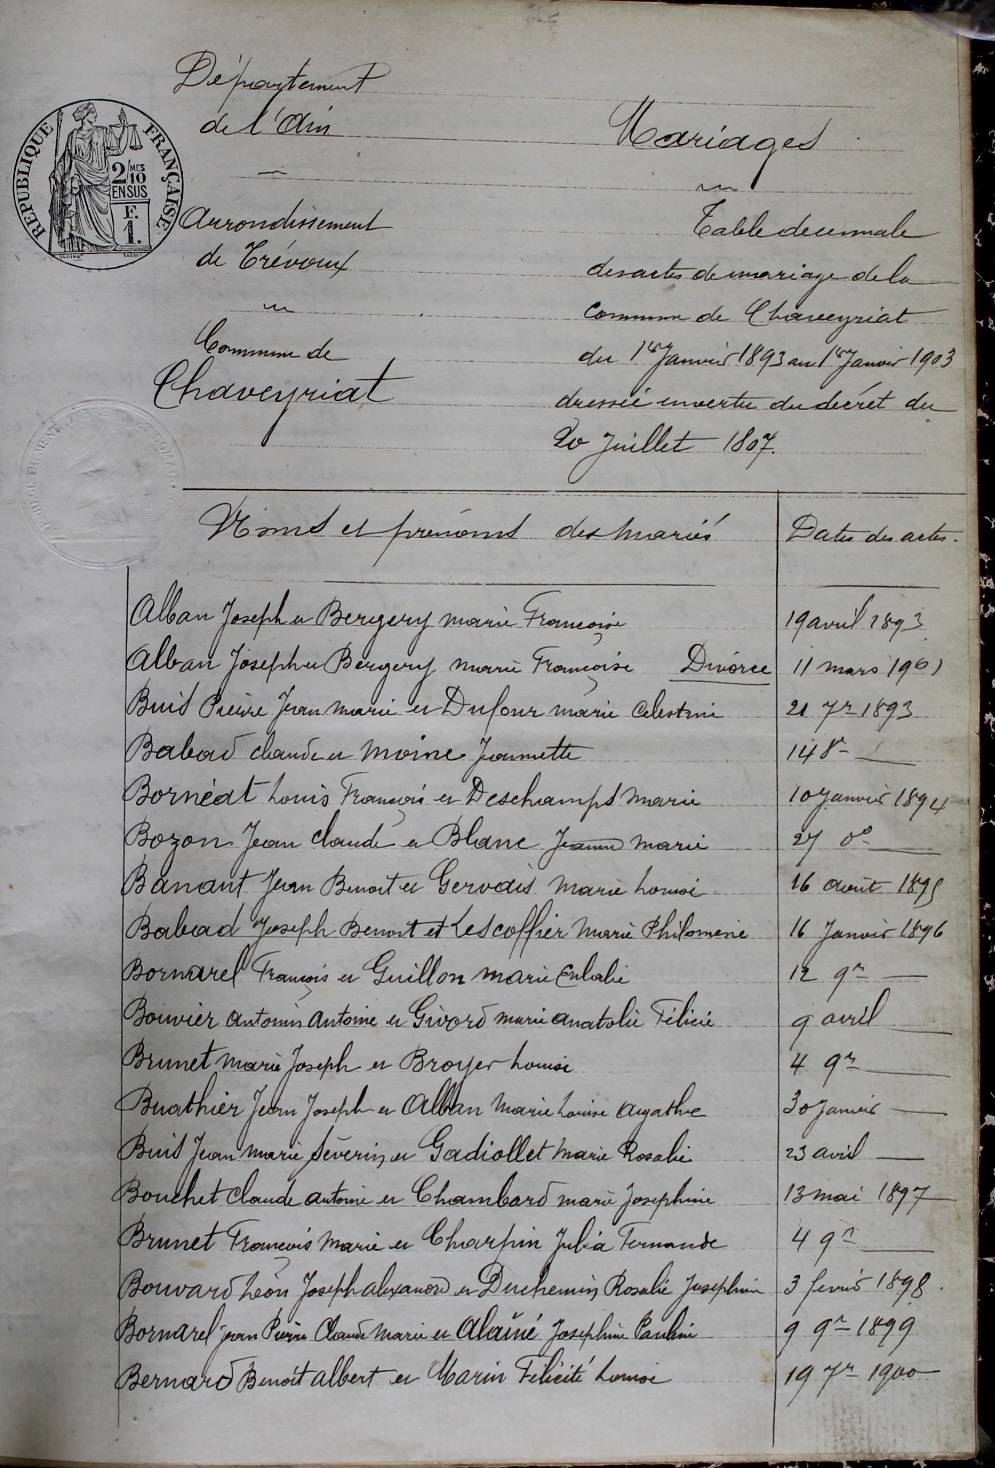 Département
de l'Ain
Mariages
RÉPUBLIQUE FRANÇAISE
2/10 MES
EN SUS
F.
1.
Arrondissement
de Trévoux
Table décennale
des actes de mariage de la
commune de Chaveyriat
Commune de
du 1er Janvier 1893 au 1er Janvier 1903
Chaveyriat
dressée en vertu du décret du
20 Juillet 1807.
Noms et prénoms des mariés
Dates des actes.
Alban Joseph et Bergery Marie Françoise 19 avril 1893
Alban Joseph et Bergery Marie Françoise Divorce 11 mars 1901
Buis Pierre Jean Marie et Dufour Marie Célestine 21 7re 1893
Babad Claude et Moine Jeannette 14 8re —
Bornéat Louis François et Deschamps Marie 10 Janvier 1894
Bozon Jean Claude et Blanc Jeanne Marie 27 do —
Banant Jean Benoit et Gervais Marie Louise 16 août 1895
Babad Joseph Benoit et Lescoffier Marie Philomène 16 Janvier 1896
Bornarel François et Guillon Marie Eulalie 12 9re —
Bouvier Antonin Antoine et Givord Marie Anatolie Félicie 9 avril —
Brunet Marie Joseph et Broyer Louise 4 9re —
Buathier Jean Joseph et Alban Marie Louise Agathe 30 Janvier —
Buis Jean Marie Séverin et Gadiollet Marie Rosalie 23 avril —
Bouchet Claude Antoine et Chambard Marie Josephine 13 mai 1897
Brunet François Marie et Charpin Julia Fernande 4 9re —
Bouvard Léon Joseph Alexandre et Duchemin Rosalie Josephine 3 fevrier 1898.
Bornarel Jean Pierre Claude Marie et Alaîné Josephine Pauline 9 9re 1899
Bernard Benoît Albert et Marin Félicité Louise 19 7re 1900